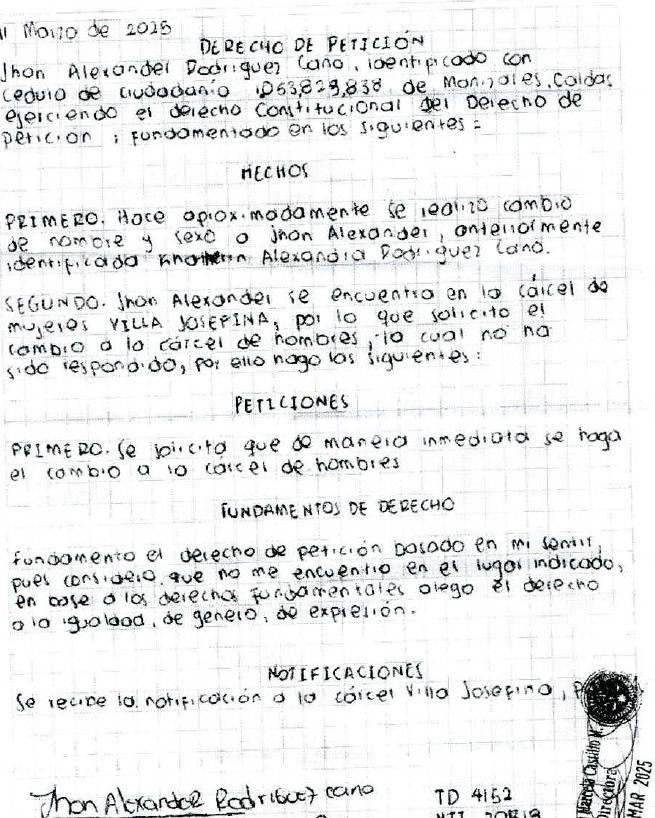 11 Marzo de 2025
DERECHO DE PETICIÓN
Jhon Alexander Rodriguez Cano, identificado con
cedula de ciudadania 1,053,829,838 de Manizales, Caldas
ejerciendo el derecho Constitucional del Derecho de
peticion ; fundamentado en los siguientes =
HECHOS
PRIMERO. Hace aproximadamente se realizo cambio
de nombre y sexo a Jhon Alexander, anteriormente
identificada Alexandra Rodriguez Cano.
SEGUNDO. Jhon Alexander se encuentra en la cárcel de
mujeres VILLA JOSEFINA, por lo que solicito el
cambio a la cárcel de hombres, lo cual no ha
sido respondido, por ello hago las siguientes:
PETICIONES
PRIMERO. Se solicita que de manera inmediata se haga
el cambio a la cárcel de hombres
FUNDAMENTOS DE DERECHO
Fundamento el derecho de petición basado en mi sentir,
pues considero que no me encuentro en el lugar indicado,
en base a los derechos fundamentales alego el derecho
a la igualdad, de genero, de expresión.
NOTIFICACIONES
Se recibe la notificación a la cárcel Villa Josefina,
Jhon Alexander Rodriguez cano
TD 4152
Castillo M.
Directora
MAR 2025